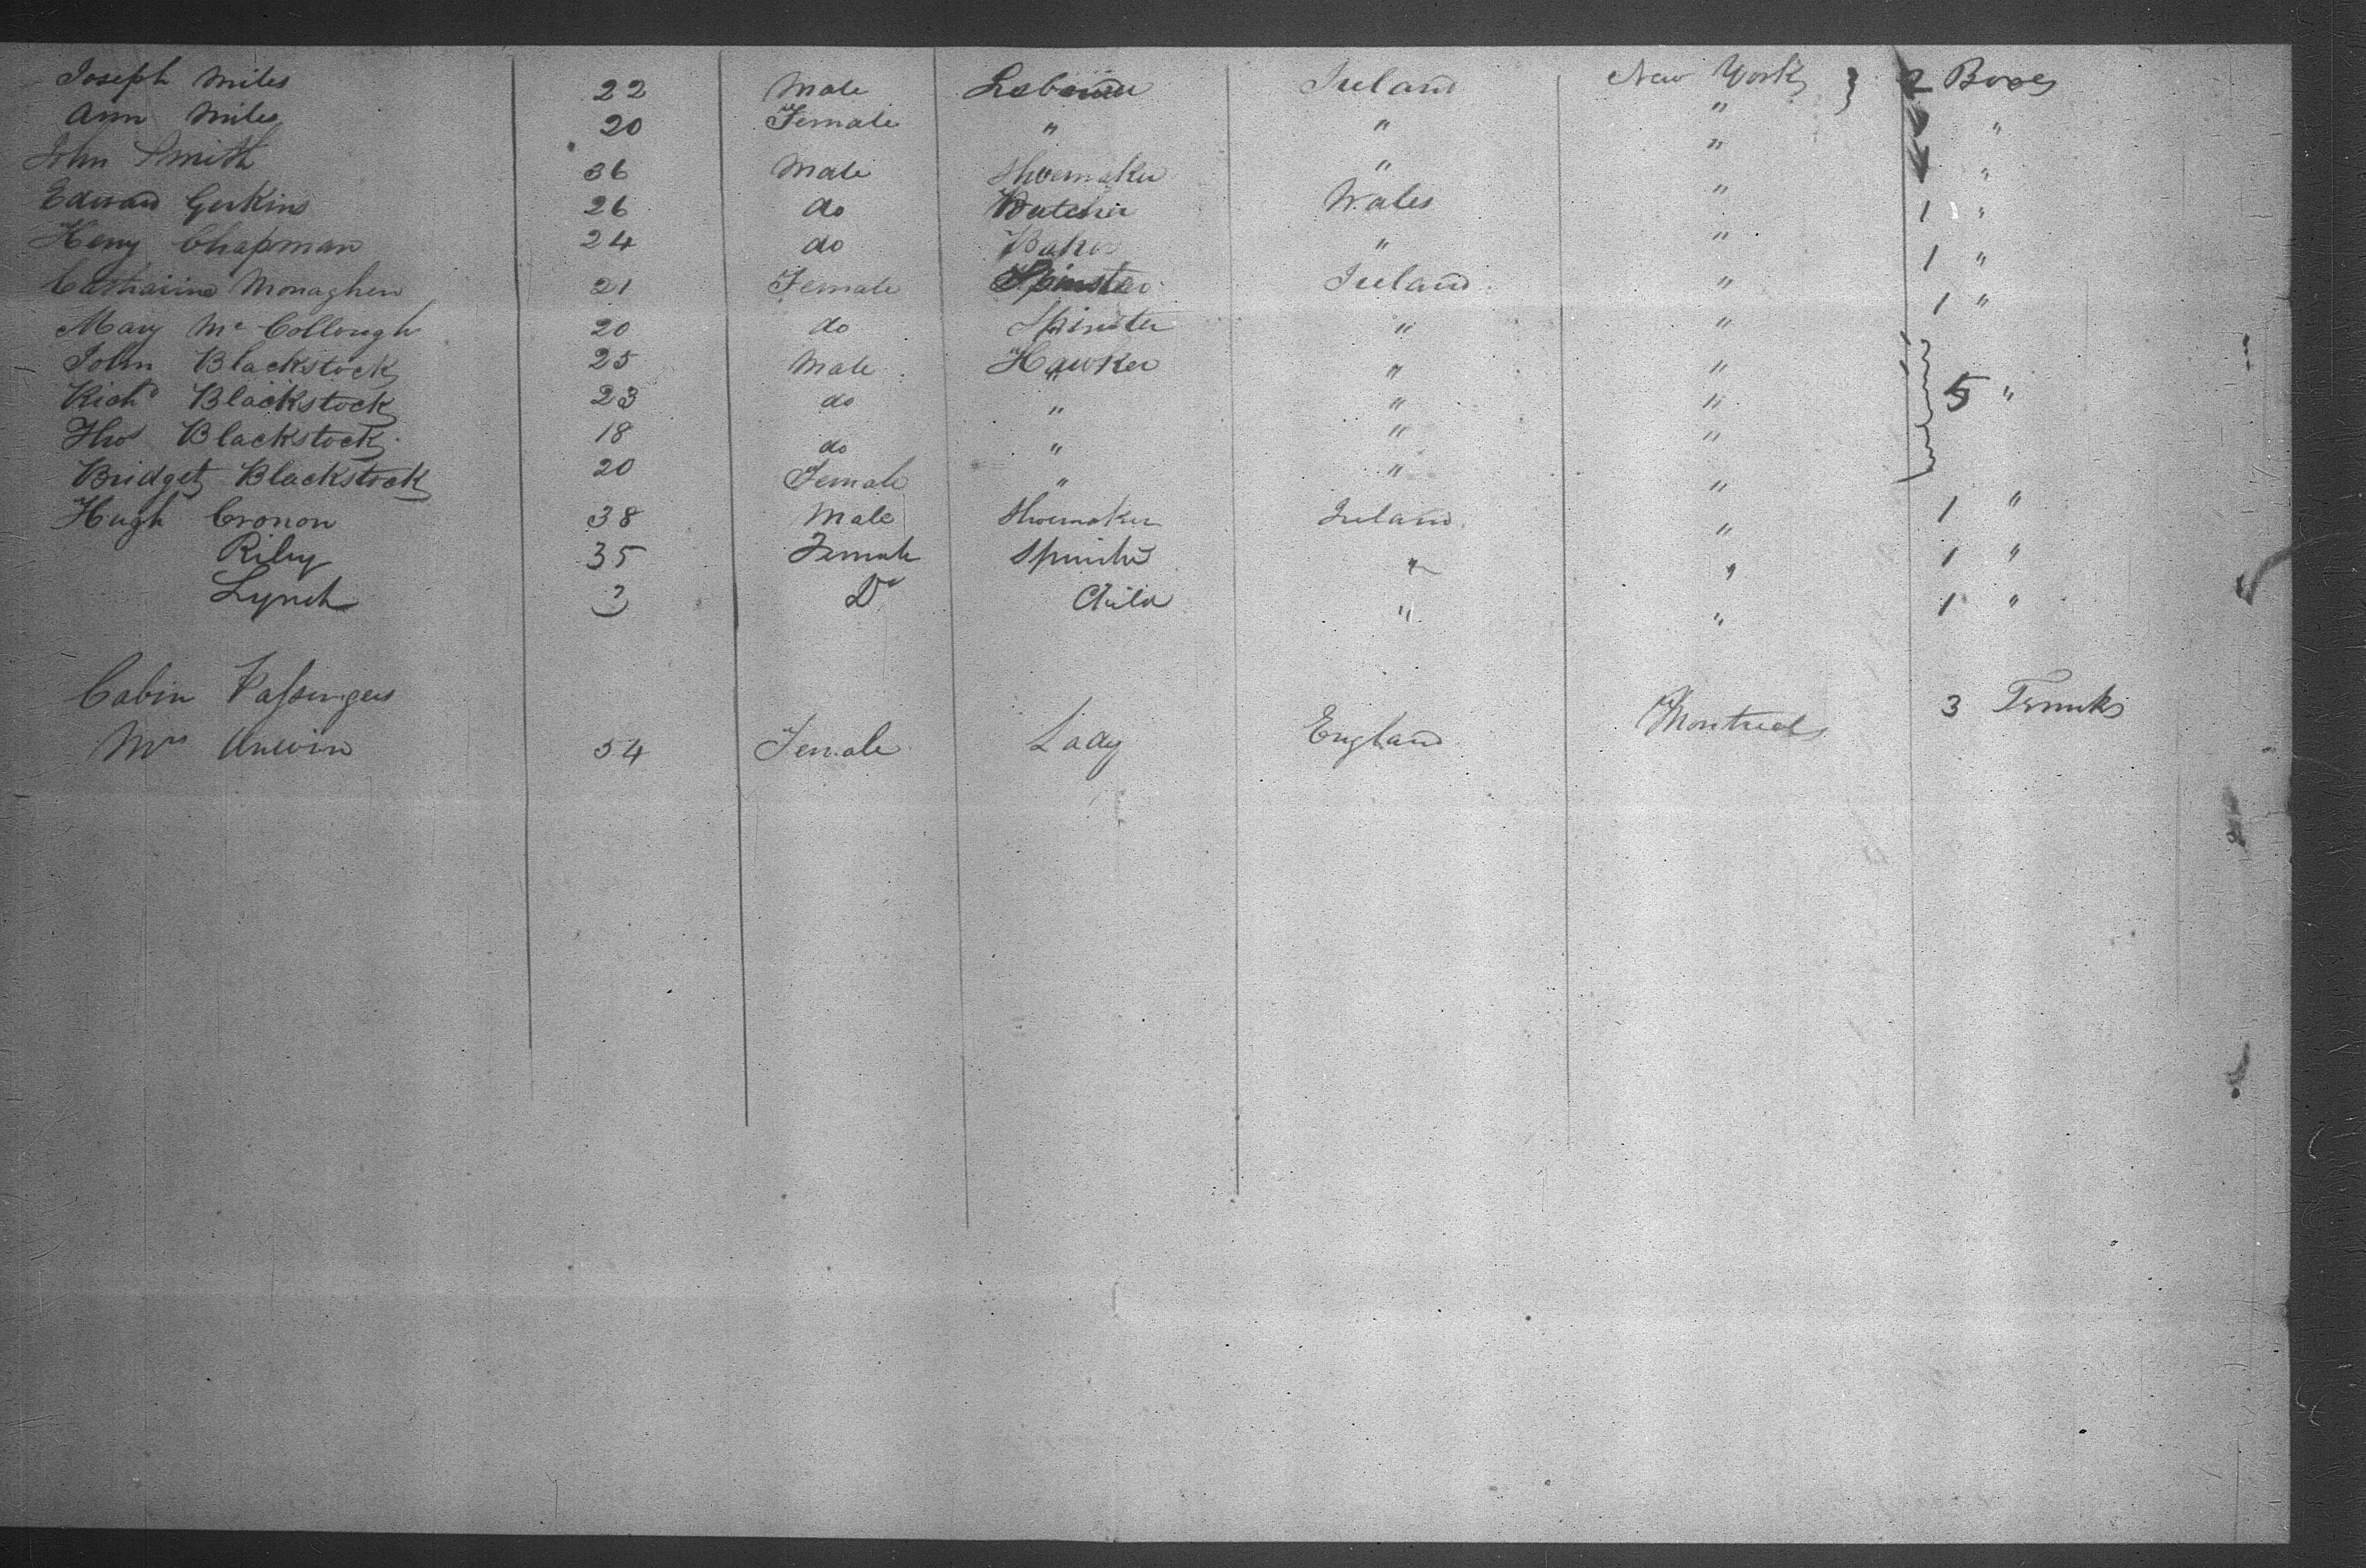 Joseph Miles 22 Male Labourer Ireland New York } 2 Boxes
Ann Miles 20 Female " " " "
John Smith 36 Male Shoemaker " " "
Edward Gerkins 26 do Butcher Wales " 1 "
Henry Chapman 24 do Baker " " 1 "
Catharine Monaghen 21 Female Spinster Ireland " 1 "
Mary Mc Collough 20 do Spinster " "
John Blackstock 25 Male Hawker " "
Richd Blackstock 23 do " " " 5 "
Thos Blackstock 18 do " " "
Bridget Blackstock 20 Female " " "
Hugh Cronon 38 Male Shoemaker Ireland " 1 "
Riley 35 Female Spinster " " 1 "
Lynch 3 Do Child " " 1 "
Cabin Passengers
Mrs Unwin 54 Female Lady England Montreal 3 Trunks